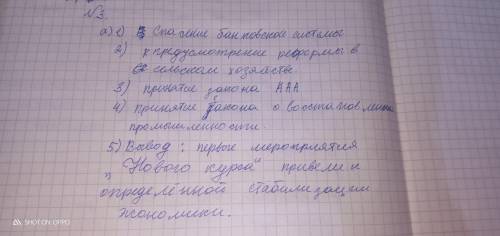 №3.
а) 1) Спасение банковской системы
2) предусмотрение реформы в
сельском хозяйстве.
3) принятие закона ААА
4) принятие закона о восстановлении
промышленности.
5) Вывод: первые мероприятия
"Нового курса" привели к
определённой стабилизации
экономики.
SHOT ON OPPO